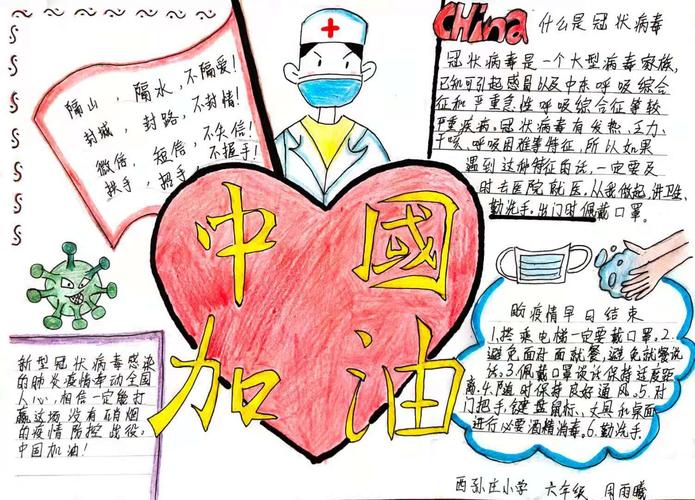 隔山，隔水，不隔爱！
封城，封路，不封情！
微信，短信，不失信！
扶手，把手，不握手！
China
什么是冠状病毒
冠状病毒是一个大型病毒家族，
已知可引起感冒以及中东呼吸综合
征和严重急性呼吸综合征等较
严重疾病，冠状病毒有发热、乏力、
干咳、呼吸困难等特征，所以如果
遇到这种特征的话，一定要及
时去医院就医，从我做起，讲卫生，
勤洗手，出门时佩戴口罩。
中國
加油
新型冠状病毒感染
的肺炎疫情牵动全国
人心，相信一定能打
赢这场没有硝烟
的疫情防控战役，
中国加油！
盼疫情早日结束
1.搭乘电梯一定要戴口罩。2.
避免面对面就餐，避免就餐说
话。3.佩戴口罩谈话保持适度距
离。4.随时保持良好通风。5.对
门把手、键盘鼠标、文具和桌面
进行必要酒精消毒。6.勤洗手。
西孙庄小学 六年级 周雨曦